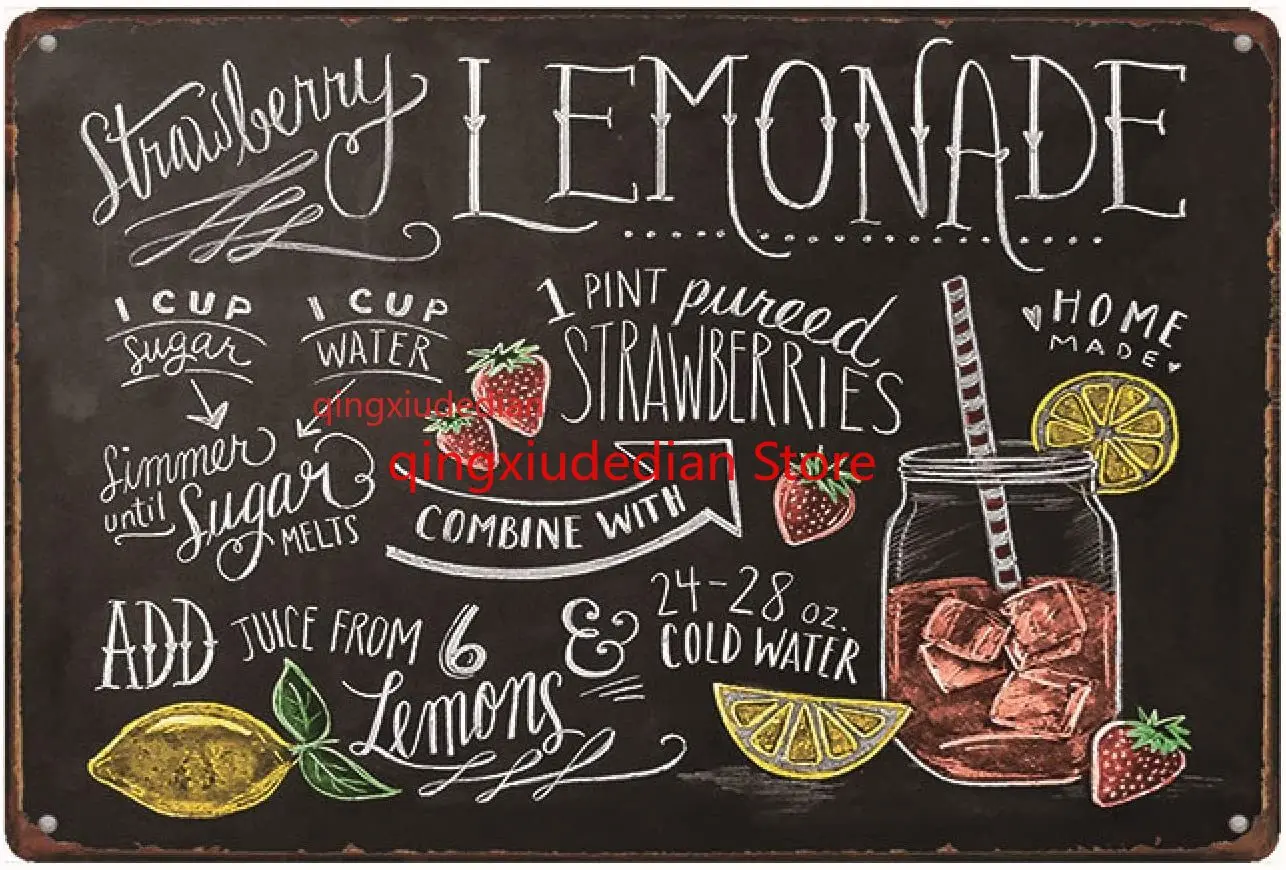 Strawberry LEMONADE
1 CUP
sugar
1 CUP
WATER
1 PINT pureed
STRAWBERRIES
HOME
MADE
qingxiudedian
qingxiudedian Store
Simmer
until Sugar
MELTS
COMBINE WITH
ADD JUICE FROM 6
Lemons
& 24-28 OZ.
COLD WATER